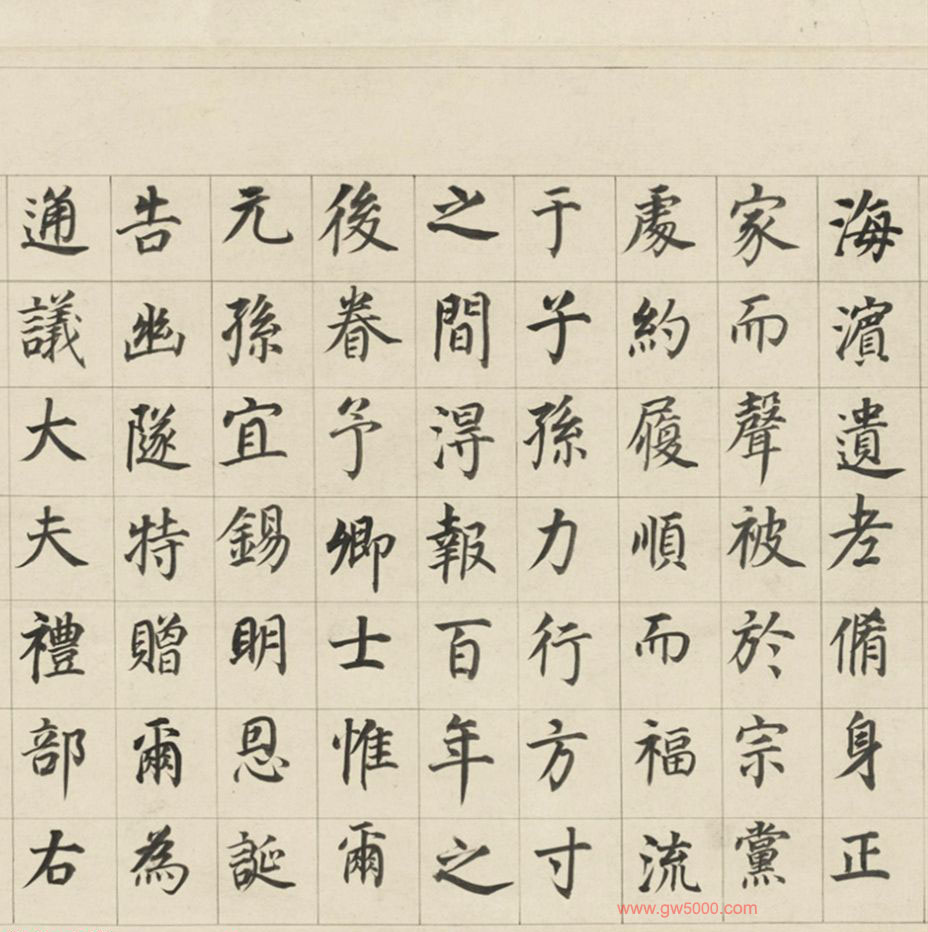 海濵遺老脩身正
家而聲被於宗黨
處約履順而福流
于子孫力行方寸
之間淂報百年之
後眷予卿士惟爾
元孫宜錫明恩誕
告幽隧特贈爾為
通議大夫禮部右
www.gw5000.com